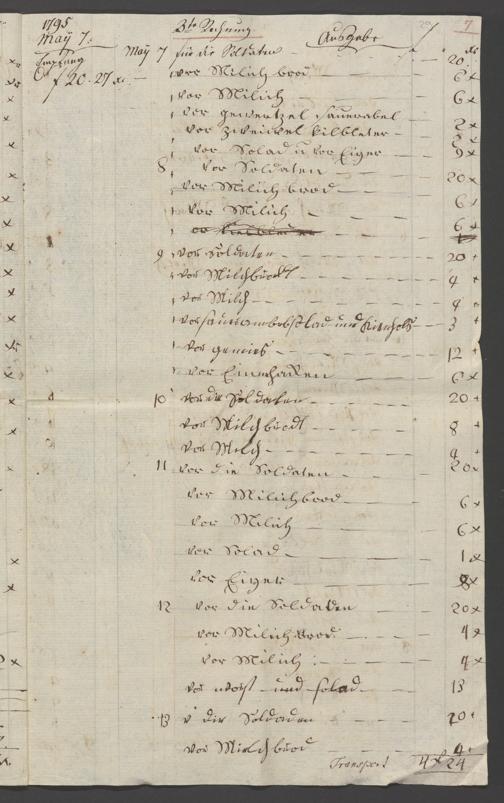 1795 3te Rechnung 7
May 7. Ausgabe
Empfang May 7 für die Soldaten 20
f 20.27 x. vor Milich brod 6 x
vor Milich 6 x
vor 2 x
vor Zweibel
vor Solad u vor Eiger 9 x
8 vor Soldaten 20 x
vor Milich brod 6
vor Milich 6 x
9 vor Soldaten 20
vor Milchbrodt 4
vor Milch 4
vor und 3
vor gemies 12
vor 6 x
10 vor die Soldaten 20
vor Milchbrodt 8
vor Milch 4
11 vor die Soldaten 20x
vor Milichbrod 6 x
vor Milich 6 x
vor Solad 1 x
vor Eiger 8 x
12 vor die Soldaten 20x
vor Milich Brod 4 x
vor Milich 4 x
vor worst und solad 13
13 v die Soldaden 20
vor Milchbrod 4
Transport 4 f 24